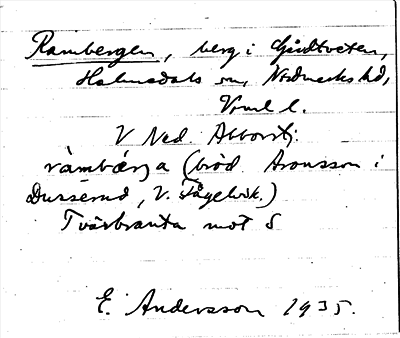 Rambergen, berg i Gårdtveten,
Holmedals sn, Nordmarks hd,
Vrml l.
V Ned. Abborrtj:
ràmbærja (bröd. Aronsson i
Durserud, V. Fågelvik.)
Tvärbranta mot S
E. Andersson 1935.